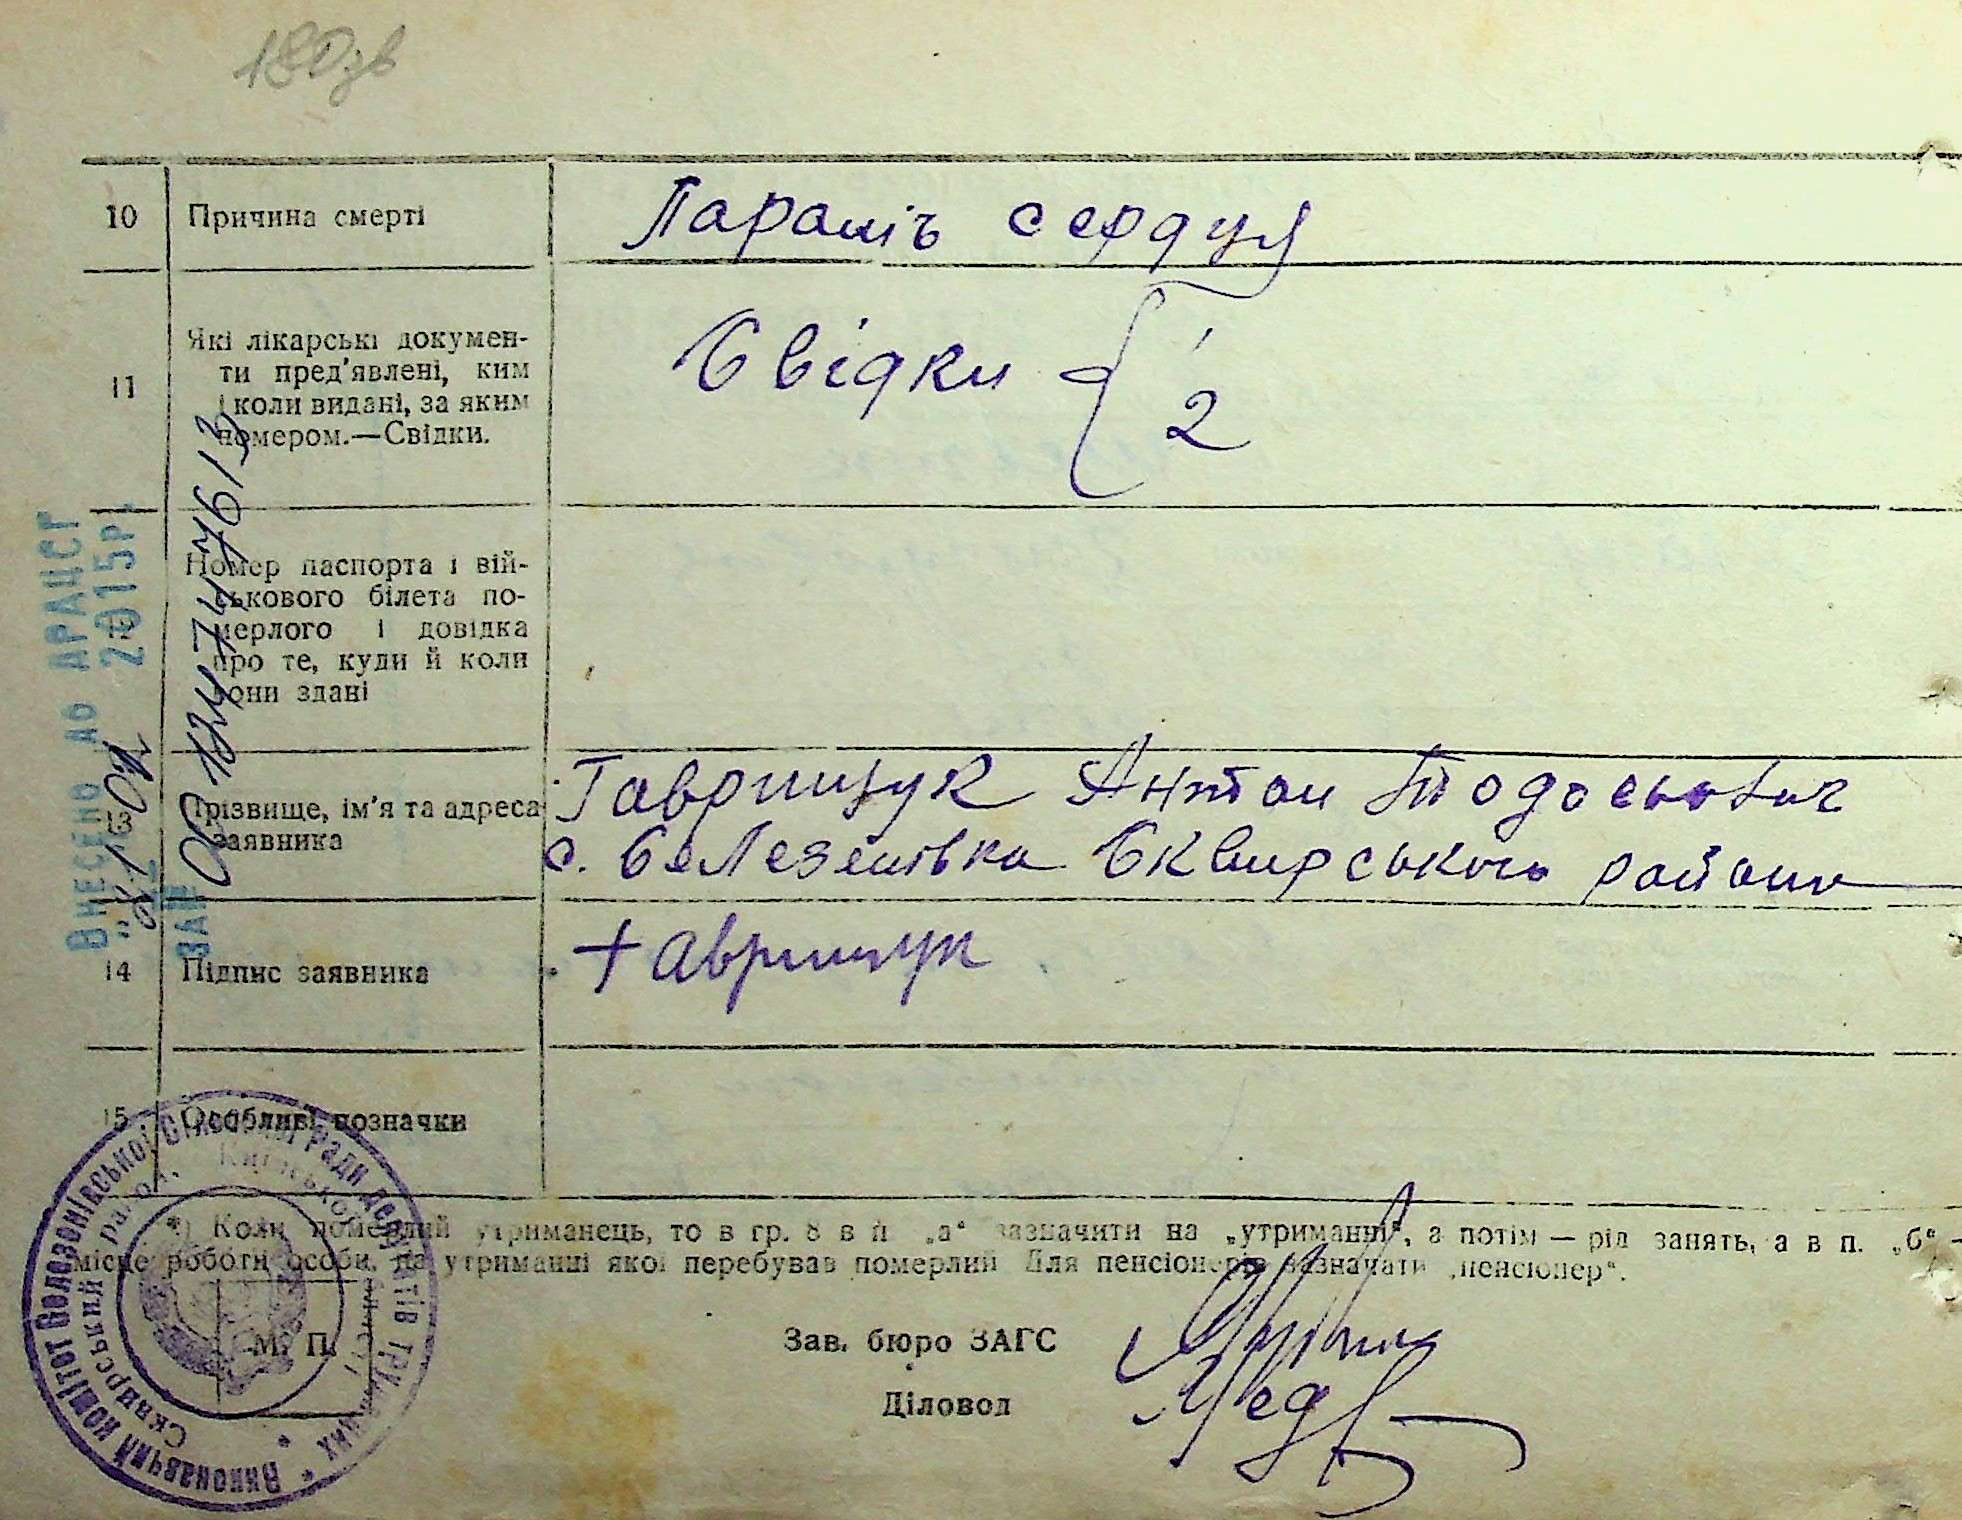 180зв
10 Причина смерті Параліч сердця
11 Які лікарські докумен-
ти пред'явлені, ким
і коли видані, за яким
номером.—Свідки.
Свідки { 1
2
Номер паспорта і вій-
ськового білета по-
мерлого і довідка
про те, куди й коли
вони здані
13 Прізвище, ім'я та адреса
заявника
Гаврищук Антон Тодосьович
с. Селезенівка Сквирського району
14 Підпис заявника Гаврищук
15 Особливі позначки
*) Коли померлий утриманець, то в гр. 8 в п. „а“ зазначити на „утриманні“, а потім — рід занять, а в п. „б“ —
місце роботи особи, на утриманні якої перебував померлий Для пенсіонерів зазначати „пенсіонер“.
М. П.
Зав. бюро ЗАГС
Діловод
Внесено до ДРАЦСГ
2015р.
ЗА №
Виконавчий комітет Селезенівської Сільської ради депутатів трудящих
Сквирський район, Київської області